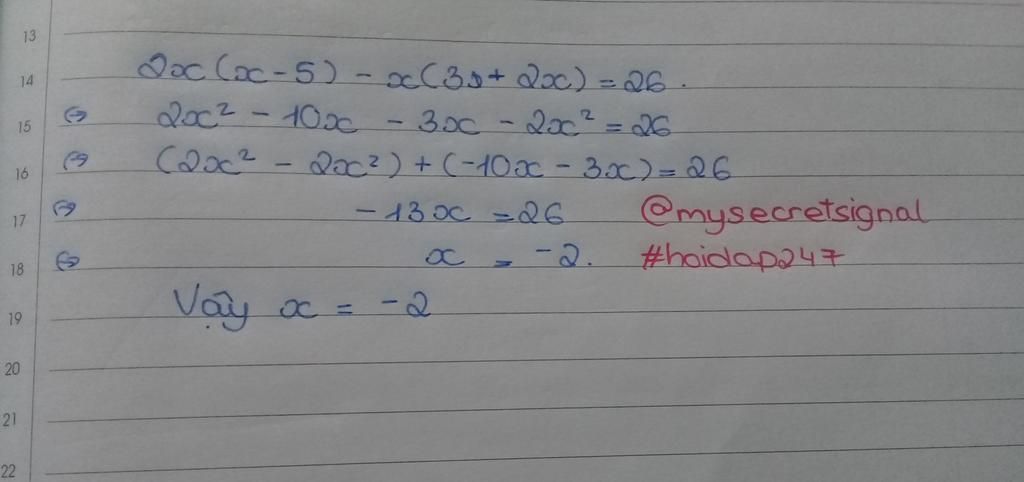 13
14 2x(x-5) - x(3+ 2x) = 26.
15 ⇔ 2x² - 10x - 3x - 2x² = 26
16 ⇔ (2x² - 2x²) + (-10x - 3x) = 26
17 ⇔ -13x = 26 @mysecretsignal
18 ⇔ x = -2. #hoidap247
19 Vậy x = -2
20
21
22